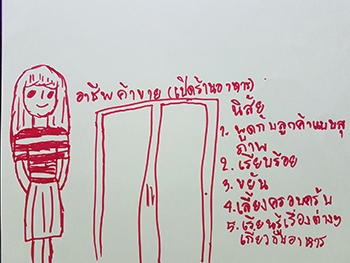 อาชีพ ค้าขาย (เปิดร้านอาหาร)
นิสัย
1. พูดกับลูกค้าแบบสุ
ภาพ
2. เรียบร้อย
3. ขยัน
4. เลี้ยงครอบครัว
5. เรียนรู้เรื่องต่างๆ
เกี่ยวกับอาหาร